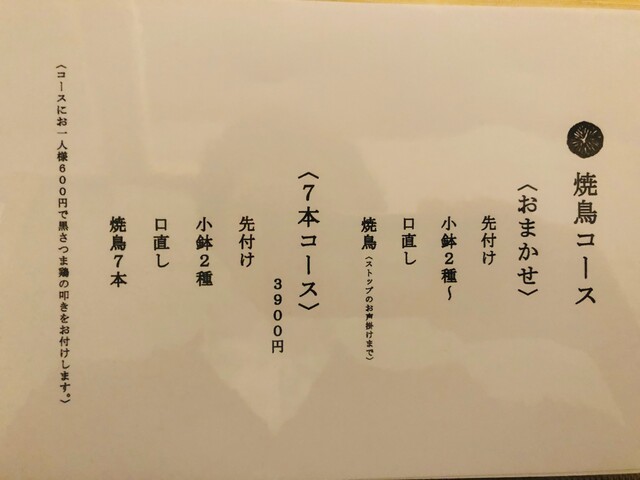 焼鳥コース
〈おまかせ〉
先付け
小鉢2種~
口直し
焼鳥(ストップのお声掛けまで)
〈7本コース〉
3900円
先付け
小鉢2種
口直し
焼鳥7本
〈コースにお一人様600円で黒さつま鶏の叩きをお付けします。〉